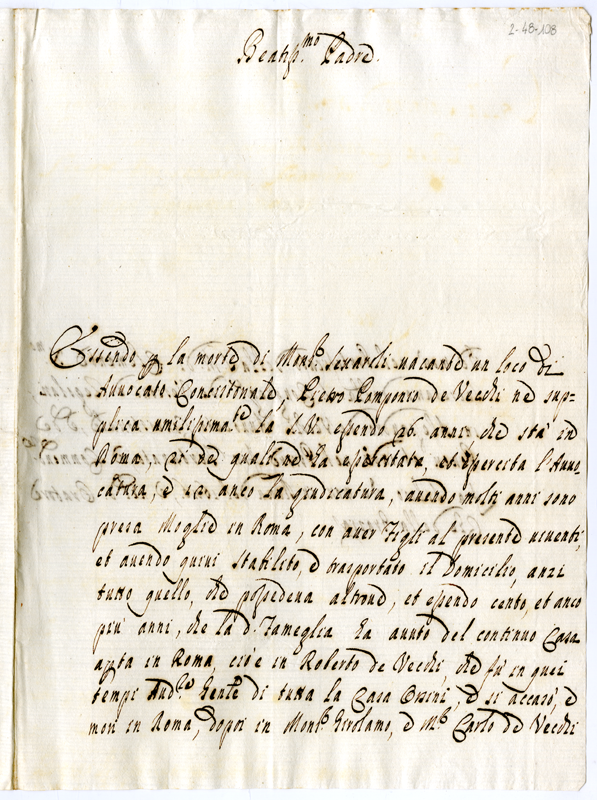 2-48-108
Beatiss.mo Padre.
Essendo p la morte di Mons.r vacante un loco di
Avvocato Concistoriale Pietro Pomponio de Vecchi ne sup=
plica umilissima.te la S.V. essendo 26. anni che sta in
Roma, 21 de quali ne ha essercitata, et essercita l'Avvo=
catura, e 12 anco la giudicatura, avendo molti anni sono
presa Moglie in Roma, con aver figli al presente viventi,
et avendo quivi stabilito, e trasportato il Domicilio, anzi
tutto quello, che possedeva altrove, et essendo cento, et anco
più anni, che la d.a Fameglia ha avuto del continuo Casa
apta in Roma, cioè in Roberto de Vecchi, che fù in quei
tempi Aud.re Gen.le di tutta la Casa Orsini, e si accasò, e
morì in Roma, e dopoi in Mons.r Girolamo, e M.r Carlo de Vecchi